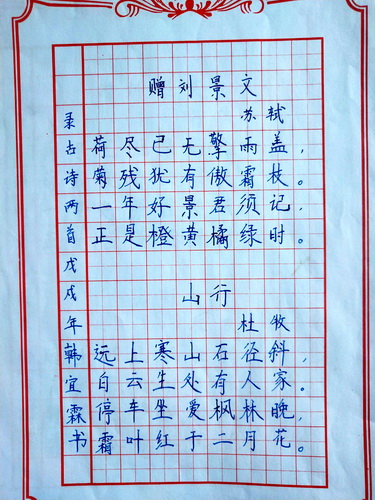 赠刘景文
苏轼
荷尽已无擎雨盖，
菊残犹有傲霜枝。
一年好景君须记，
正是橙黄橘绿时。
山行
杜牧
远上寒山石径斜，
白云生处有人家。
停车坐爱枫林晚，
霜叶红于二月花。
录古诗两首戊戌年韩宜霖书